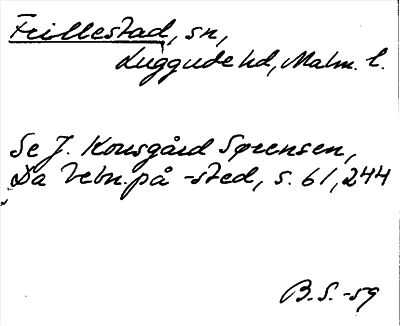 Frillestad, sn,
Luggude hd, Malm. l.
Se J. Kousgård Sørensen,
Da Bebn. på -sted, s. 61, 244
B.S. -59